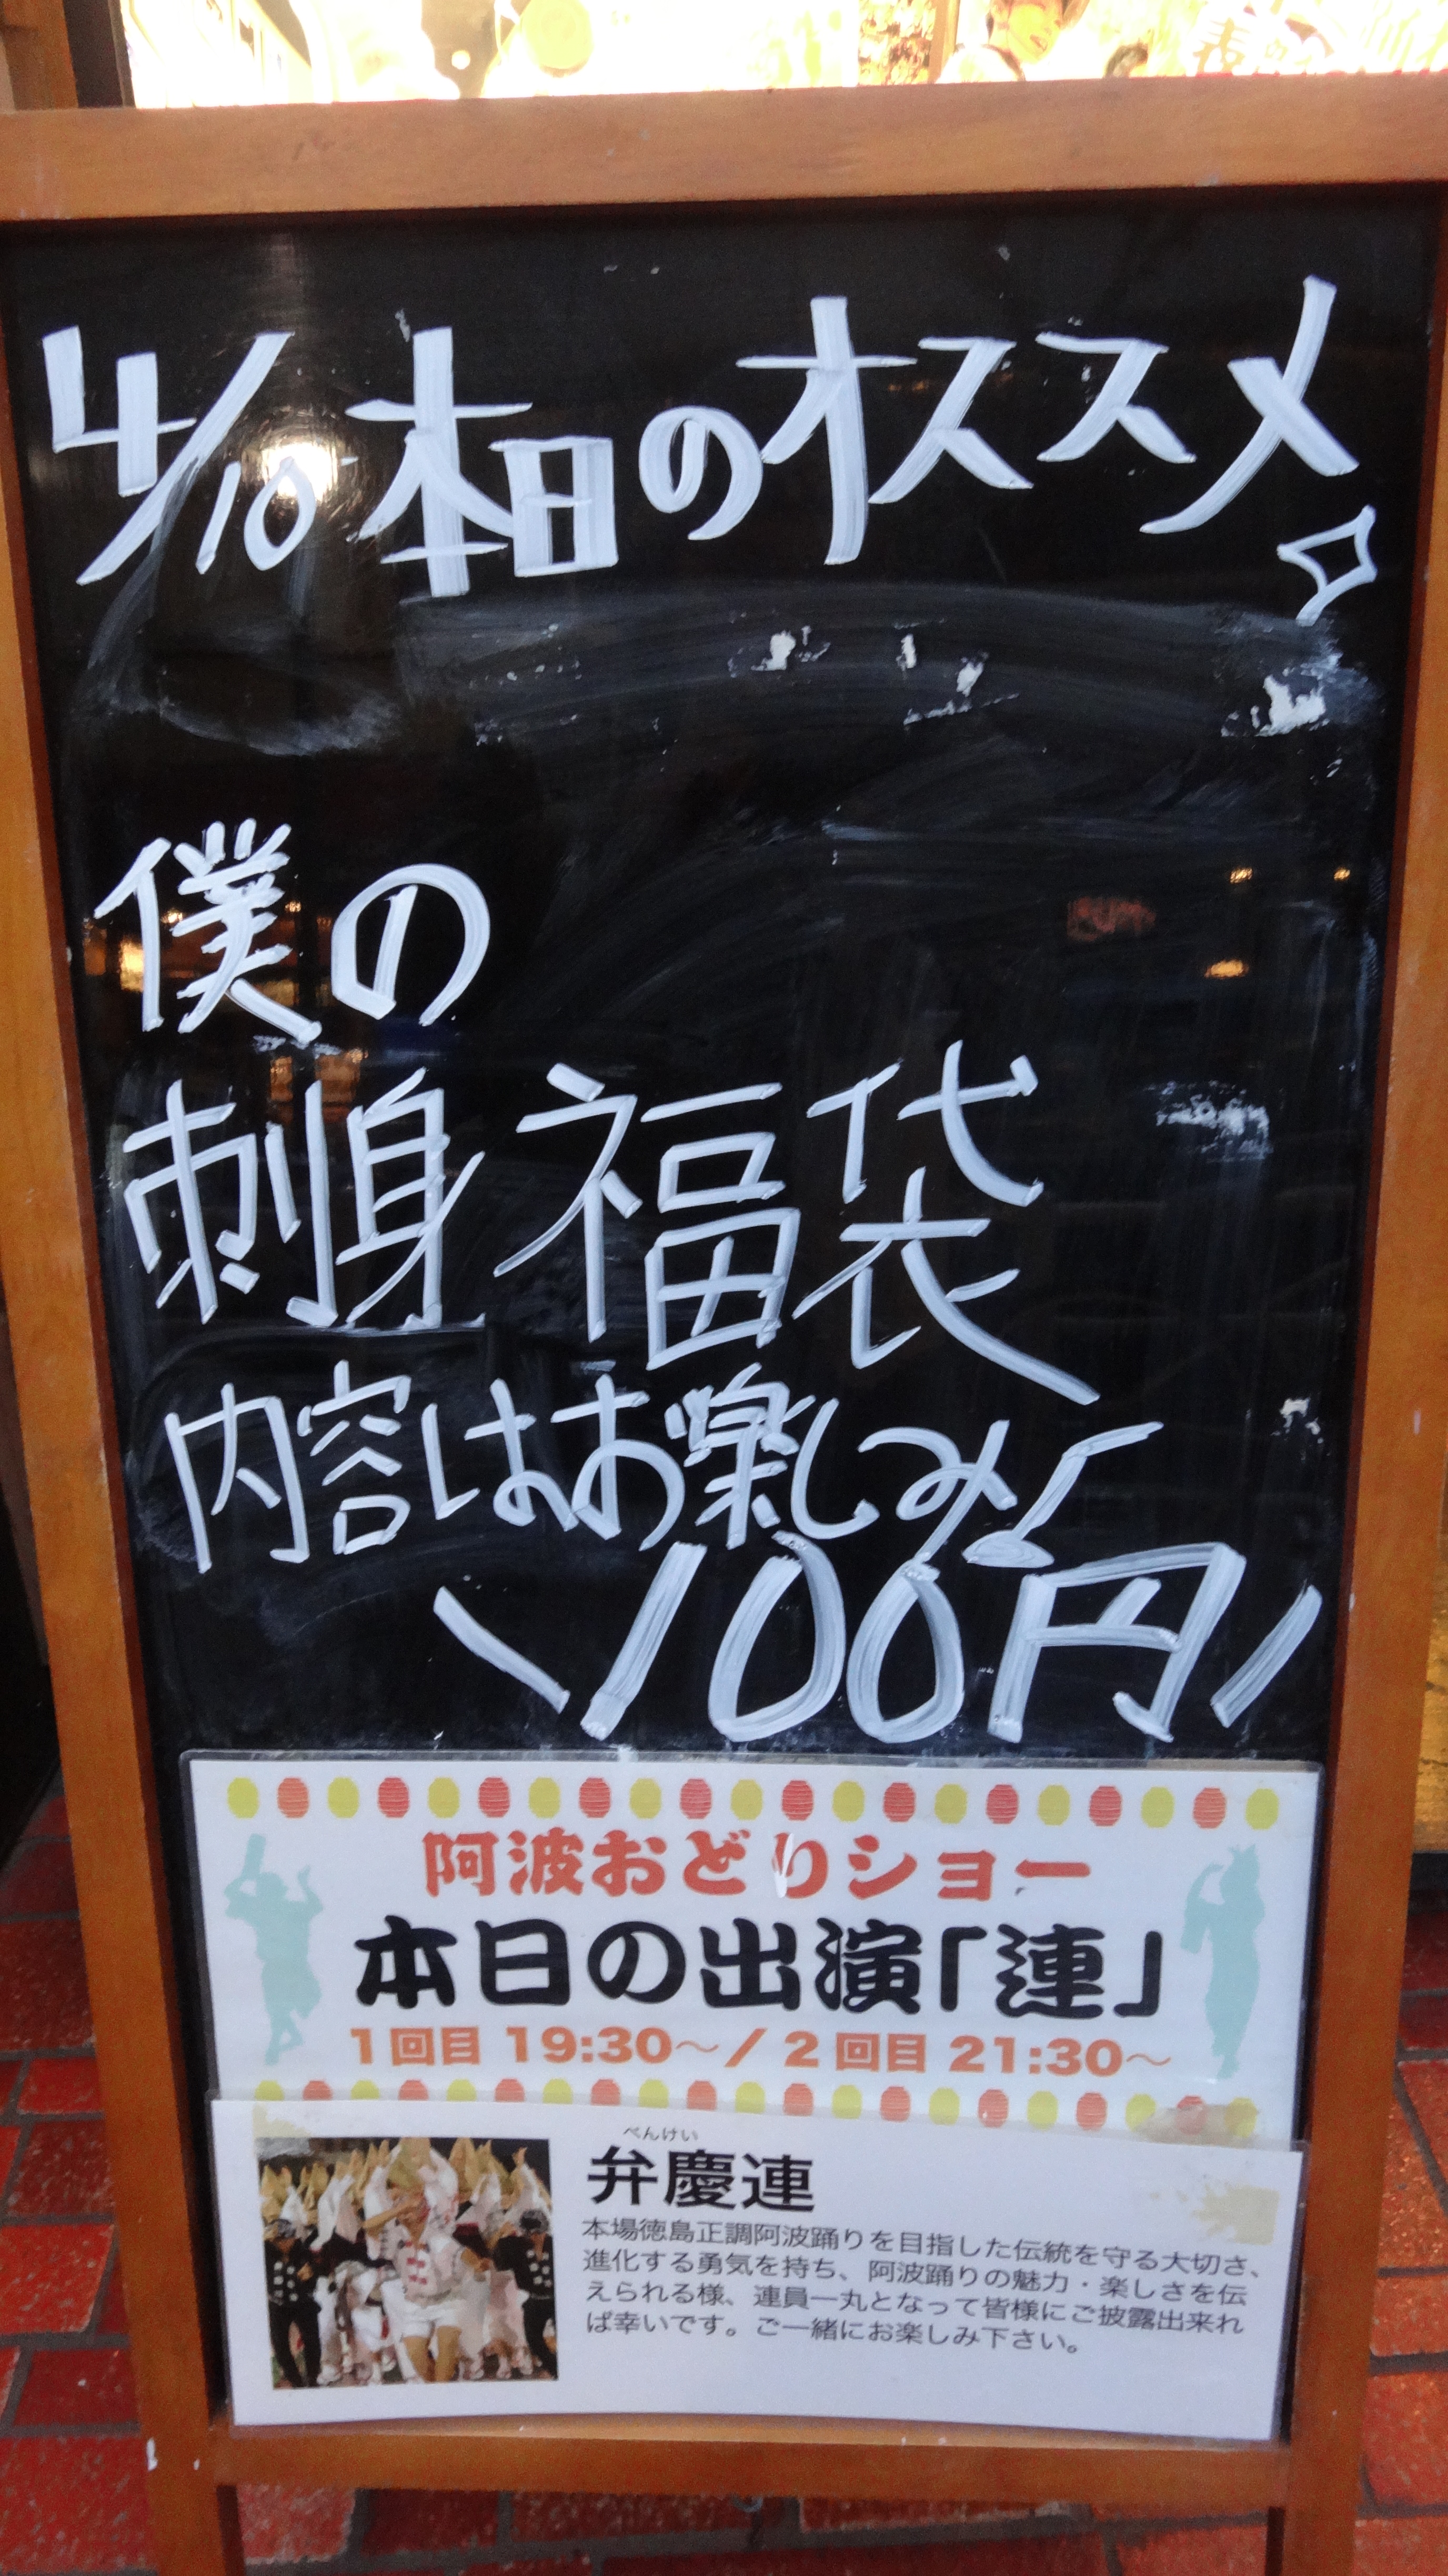 4/10 本日のオススメ
僕の
刺身 福袋
内容はお楽しみ♪
\100円/
阿波おどりショー
本日の出演「連」
1回目 19:30～/2回目 21:30～
べんけい
弁慶連
本場徳島正調阿波踊りを目指した伝統を守る大切さ、
進化する勇気を持ち、阿波踊りの魅力・楽しさを伝
えられる様、連員一丸となって皆様にご披露出来れ
ば幸いです。ご一緒にお楽しみ下さい。